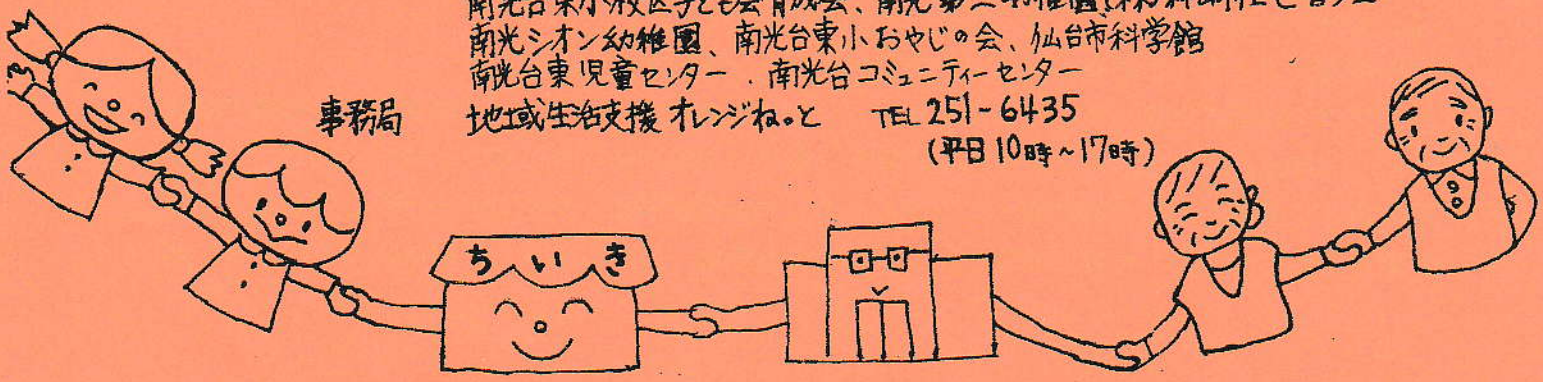 南光台東小校区子ども会育成会、南光第二幼稚園、
南光シオン幼稚園、南光台東小おやじの会、仙台市科学館
南光台東児童センター、南光台コミュニティーセンター
事務局 地域生活支援オレンジねっと TEL 251-6435
(平日10時~17時)
ちいき